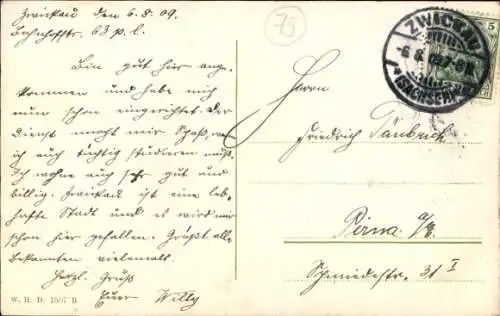 Zwickau den 6.8.09.
Bahnhofstr. 63 p. l.
Bin gut hier ange-
kommen und habe mich
nun schon eingerichtet. Der
Dienst macht mir Spaß, wenn
ich auch tüchtig studieren muß.
Ich wohne auch sehr gut und
billig. Zwickau ist eine leb-
hafte Stadt und es wird mir
schon hier gefallen. Grüßt alle
Bekannten vielemals.
Herzl. Gruß
Euer Willy
W. H. D. 1507 B
75
ZWICKAU
(SACHSEN)
5
Herrn
Friedrich
Pirna a/E.
Schmiedestr. 31 I